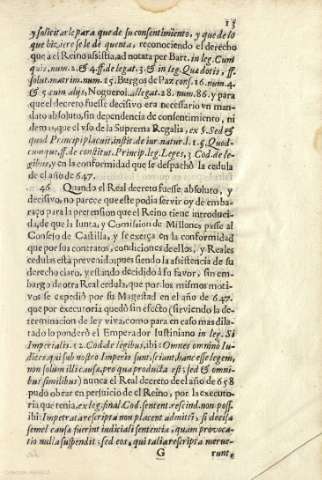 15
y solicitarle para que de su consentimiento, y que de lo
que hiziere se le dè quenta, reconociendo el derecho
que à el Reino assistia, ad notata per Bart. in leg. Cum
quis, num. 2. & 4. ff. de legat. 3. & in leg. Quæ dotis, ff.
solut. matrim. num. 25. Burgos de Paz cons. 16. num. 4.
& 5. cum alijs, Noguerol. allegat. 28. num. 86. y para
que el decreto fuesse decisivo era necessario vn man-
dato absoluto, sin dependencia de consentimiento, ni
demas que el vso de la Suprema Regalia, ex §. Sed &
quod Principi placuit instit. de iur. natural. l. 1. §. Quod-
cumque, ff. de constitut. Princip. leg. Leges, 3. Cod. de le-
gibus, y en la conformidad que se despachò la cedula
de el año de 647.
46. Quando el Real decreto fuesse absoluto, y
decisivo, no parece que este podia servir oy de emba-
raço para la pretension que el Reino tiene introduci-
da, de que la Iunta, y Comision de Millones passe al
Consejo de Castilla, y se exerça en la conformidad
que por sus contratos, condiciones de ellos, y Reales
cedulas està prevenido; pues siendo la assistencia de su
derecho claro, y estando decidido à su favor, sin em-
bargo de otra Real cedula, que por los mismos moti-
vos se expediò por su Magestad en el año de 647.
que por executoria quedò sin efecto (sirviendo la de-
terminacion de ley viva, como para en caso mas dila-
tado lo ponderò el Emperador Iustiniano in ley. Si
Imperialis. 12. Cod. de legibus, ibi: Omnes omninò Iu-
dices, qui sub nostro Imperio sunt, sciant hanc esse legem,
non solum illi causæ, pro qua producta est, sed & omni-
bus similibus) nunca el Real decreto de el año de 658
pudo obrar en perjuicio de el Reino, por la executo-
ria que tenia, ex leg. final. Cod. sentent. rescind. non pos-
ibi: Impetrata rescripta non placent admitti, si decisa
semel causa fuerint iudiciali sententia, quam provoca-
tio nulla suspendit: sed eos, qui talia rescripta meruė-
G
runt,